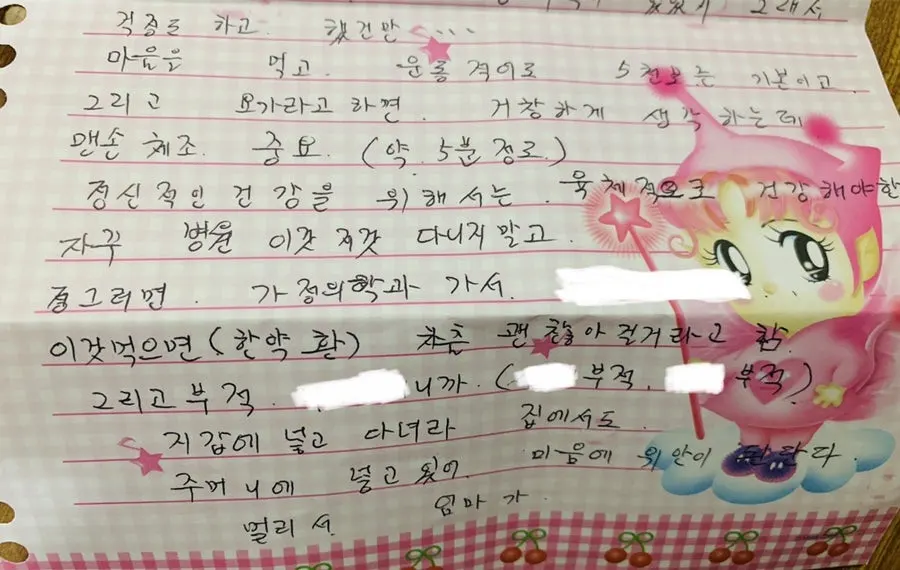 그래서
걱정도 하고. 했건만 ...
마음은 먹고. 운동 적어도 5천보는 기본이고.
그리고 요가라고 하면. 거창하게 생각하는데
맨손 체조. 중요. (약. 5분 정도.)
정신적인 건강을 위해서는. 육체적으로 건강해야한
자꾸 병원 이갓 저갓 다니지말고.
정그러면. 가정의학과 가서.
이것먹으면 (한약 환) 차츰 괜찮아 질거라고 함.
그리고 부적. 니까. ( 부적. 부적)
지갑에 넣고 다녀라 집에서도
주머니에 넣고 있어. 마음에 위안이 된단다.
멀리서. 엄마가.